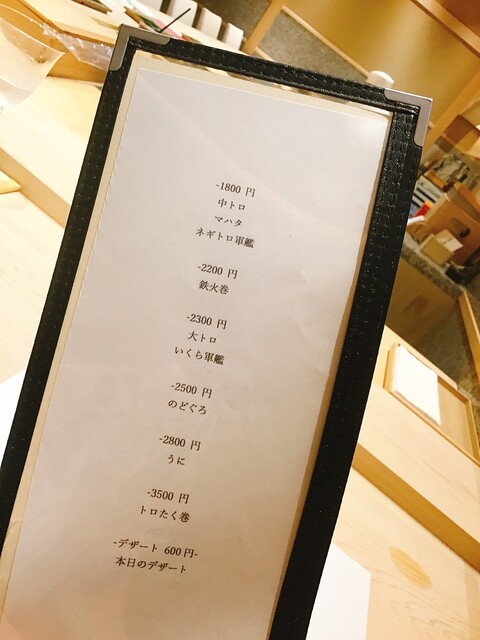 -1800 円
中トロ
マハタ
ネギトロ軍艦
-2200 円
鉄火巻
-2300 円
大トロ
いくら軍艦
-2500 円
のどぐろ
-2800 円
うに
-3500 円
トロたく巻
-デザート 600円-
本日のデザート